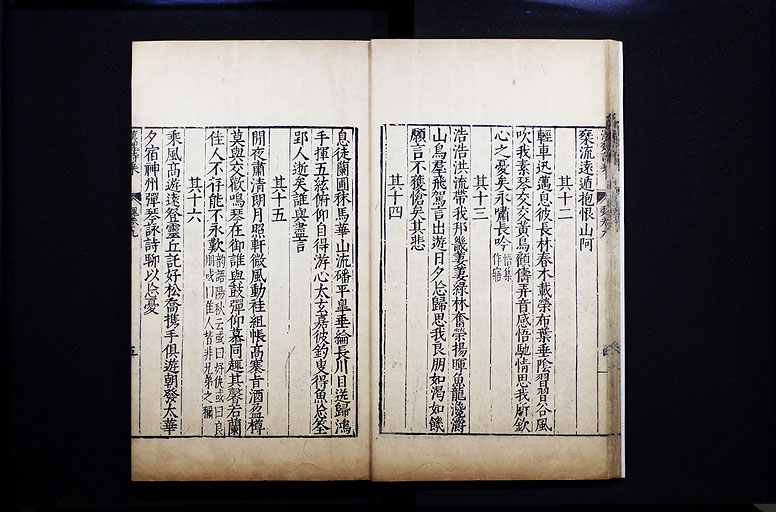 琹流遠遁抱恨山阿
其十二
輕車迅邁息彼長林春木載榮布葉垂陰習習谷風
吹我素琴交交黃鳥顧儔弄音感悟馳情思我所欽
心之憂矣永嘯長吟悟集作寤
其十三
浩浩洪流帶我邦畿萋萋綠林奮榮揚暉魚龍瀺灂
山鳥羣飛駕言出遊日夕忘歸思我良朋如渴如饑
願言不獲愴矣其悲
其十四
息徒蘭圃秣馬華山流磻平皐垂綸長川目送歸鴻
手揮五絃俯仰自得游心太玄嘉彼釣叟得魚忘筌
郢人逝矣誰與盡言
其十五
閒夜肅清朗月照軒微風動袿組帳高褰旨酒盈樽
莫與交歡鳴琴在御誰與鼓彈仰慕同趣其馨若蘭
佳人不存能不永歎韵語陽秋云或曰好仇或曰良朋或曰佳人皆非兄弟之稱
其十六
乘風高遊遠登靈丘託好松喬攜手俱遊朝發太華
夕宿神州彈琴詠詩聊以忘憂
五